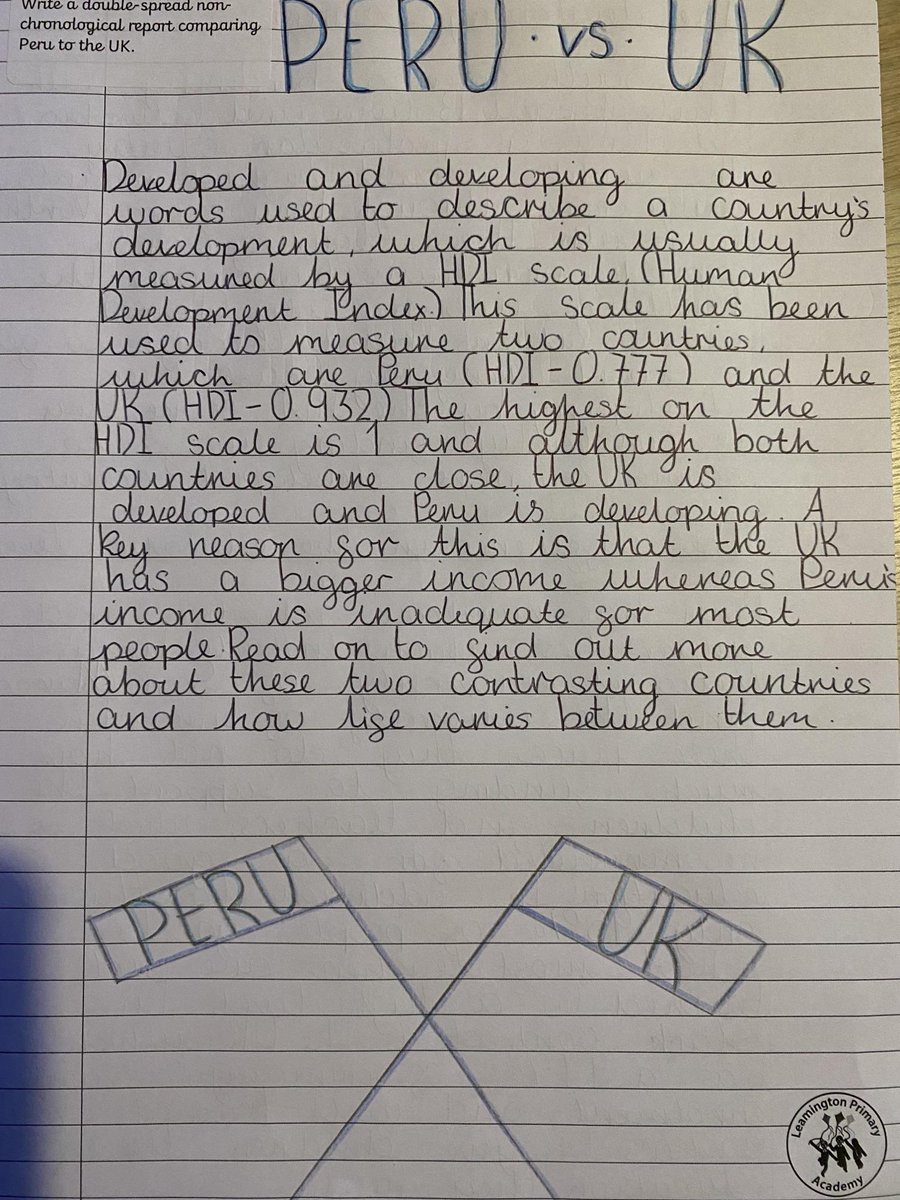 Write a double-spread non-
chronological report comparing
Peru to the UK.
PERU · vs · UK
Developed and developing are
words used to describe a country's
development, which is usually
measured by a HDI scale, (Human
Development Index.) This scale has been
used to measure two countries,
which are Peru (HDI-0.777) and the
UK (HDI-0.932) The highest on the
HDI scale is 1 and although both
countries are close, the UK is
developed and Peru is developing. A
key reason for this is that the UK
has a bigger income whereas Peru's
income is inadequate for most
people. Read on to find out more
about these two contrasting countries
and how life varies between them.
PERU
UK
Leamington Primary
Academy